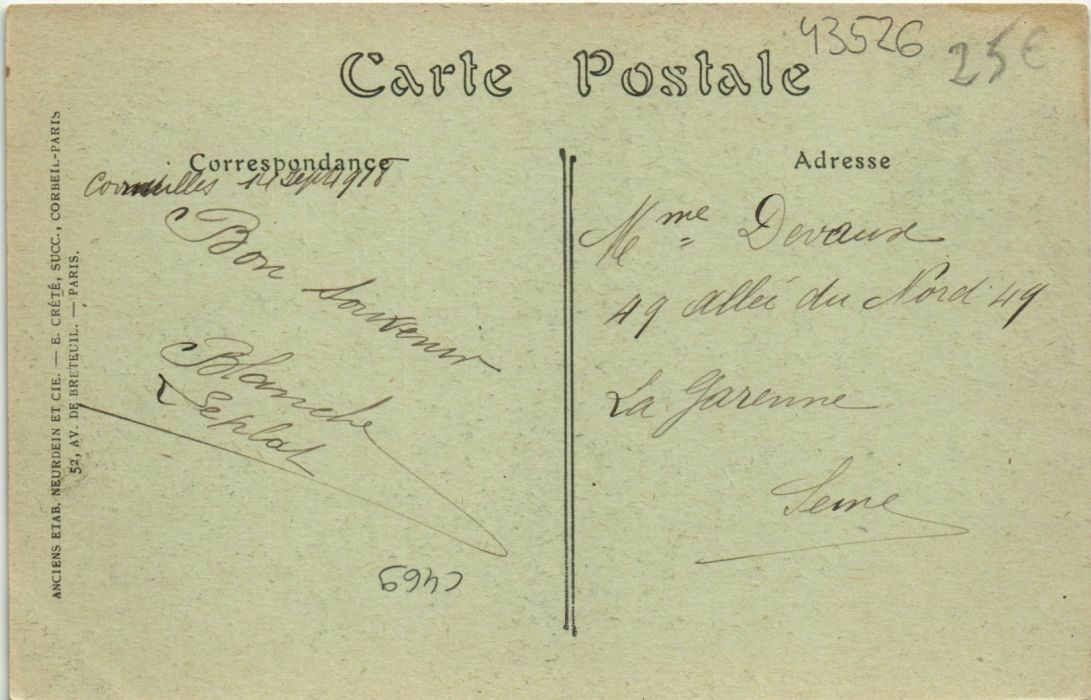 Carte Postale
43526
25€
Correspondance
Cormeilles 14 Sept 1918
Bon souvenir
Blanche
Leplat
C469
Adresse
Mme Devaux
49 allée du Nord 49
La Garenne
Seine
ANCIENS ETAB. NEURDEIN ET CIE. — E. CRÉTÉ, SUCC., CORBEIL-PARIS
52, AV. DE BRETEUIL. — PARIS.